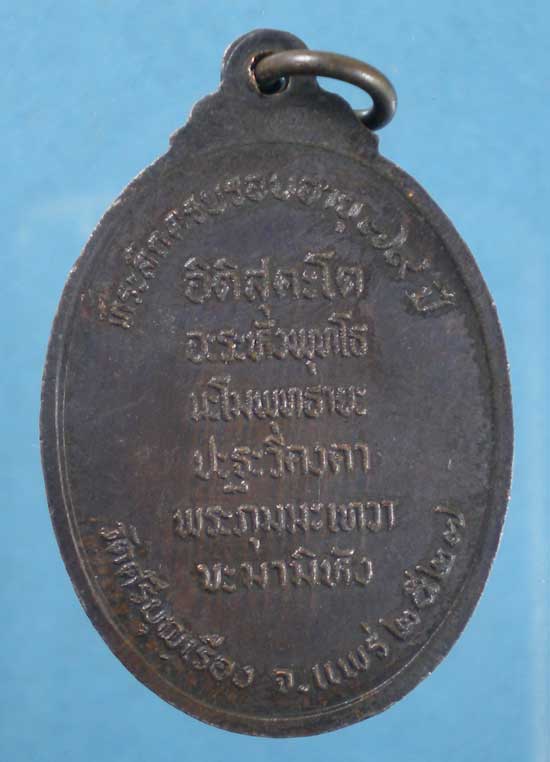 ที่ระลึกครบรอบอายุ ๖๙ ปี
อิติสุคะโต
อะระหังพุทโธ
นะโมพุทธายะ
ปะฐะวีคงคา
พระภุมมะเทวา
ขะมามิหัง
วัดศรีบุญเรือง จ.แพร่ ๒๕๒๗